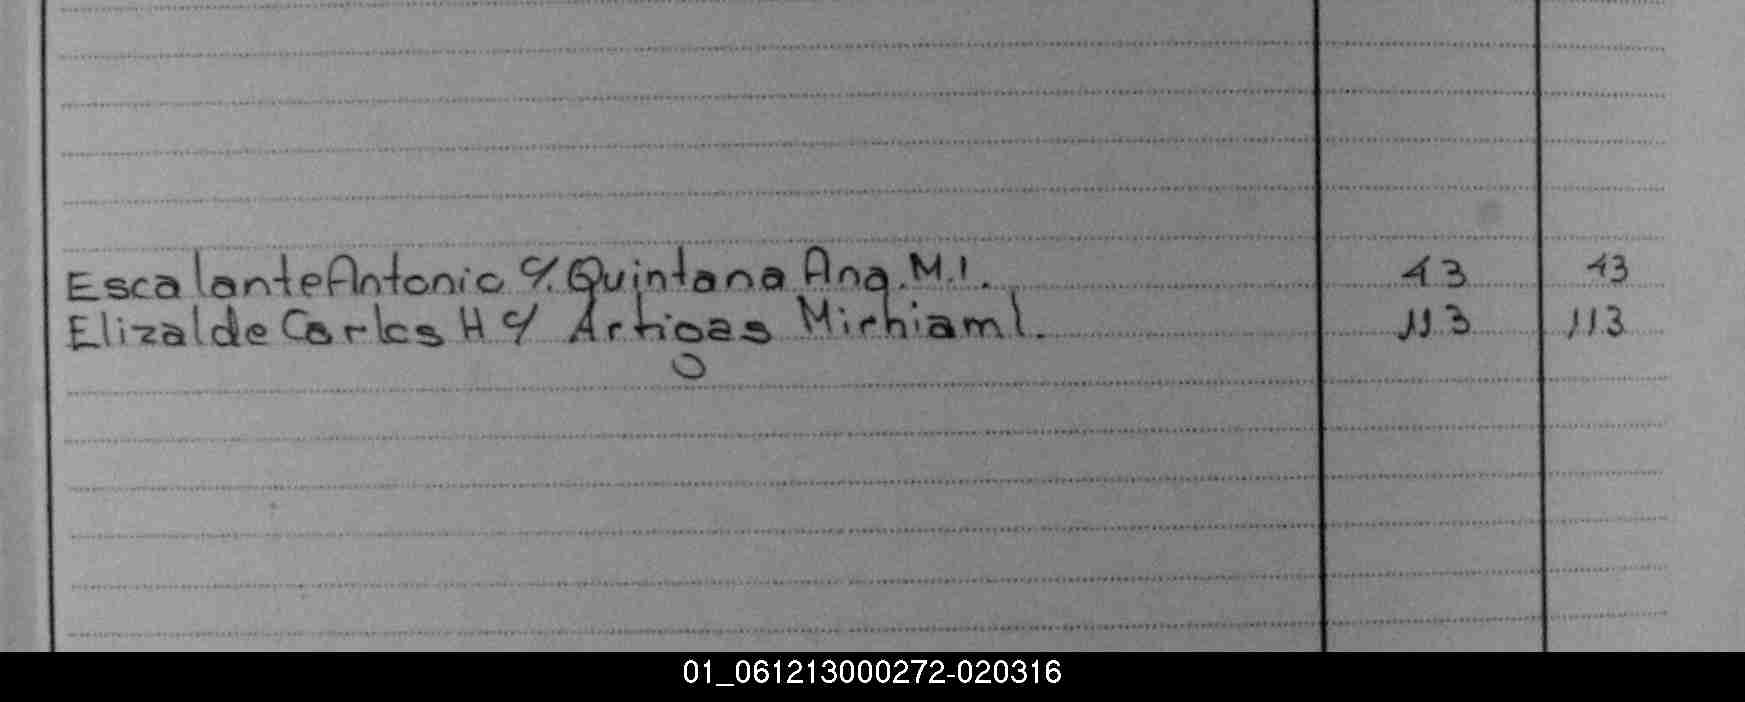 Escalante Antonio c/. Quintana Ana. M. I. 43 43
Elizalde Carlos H c/ Artigas Mirhiam I. 113 113
01_061213000272-020316